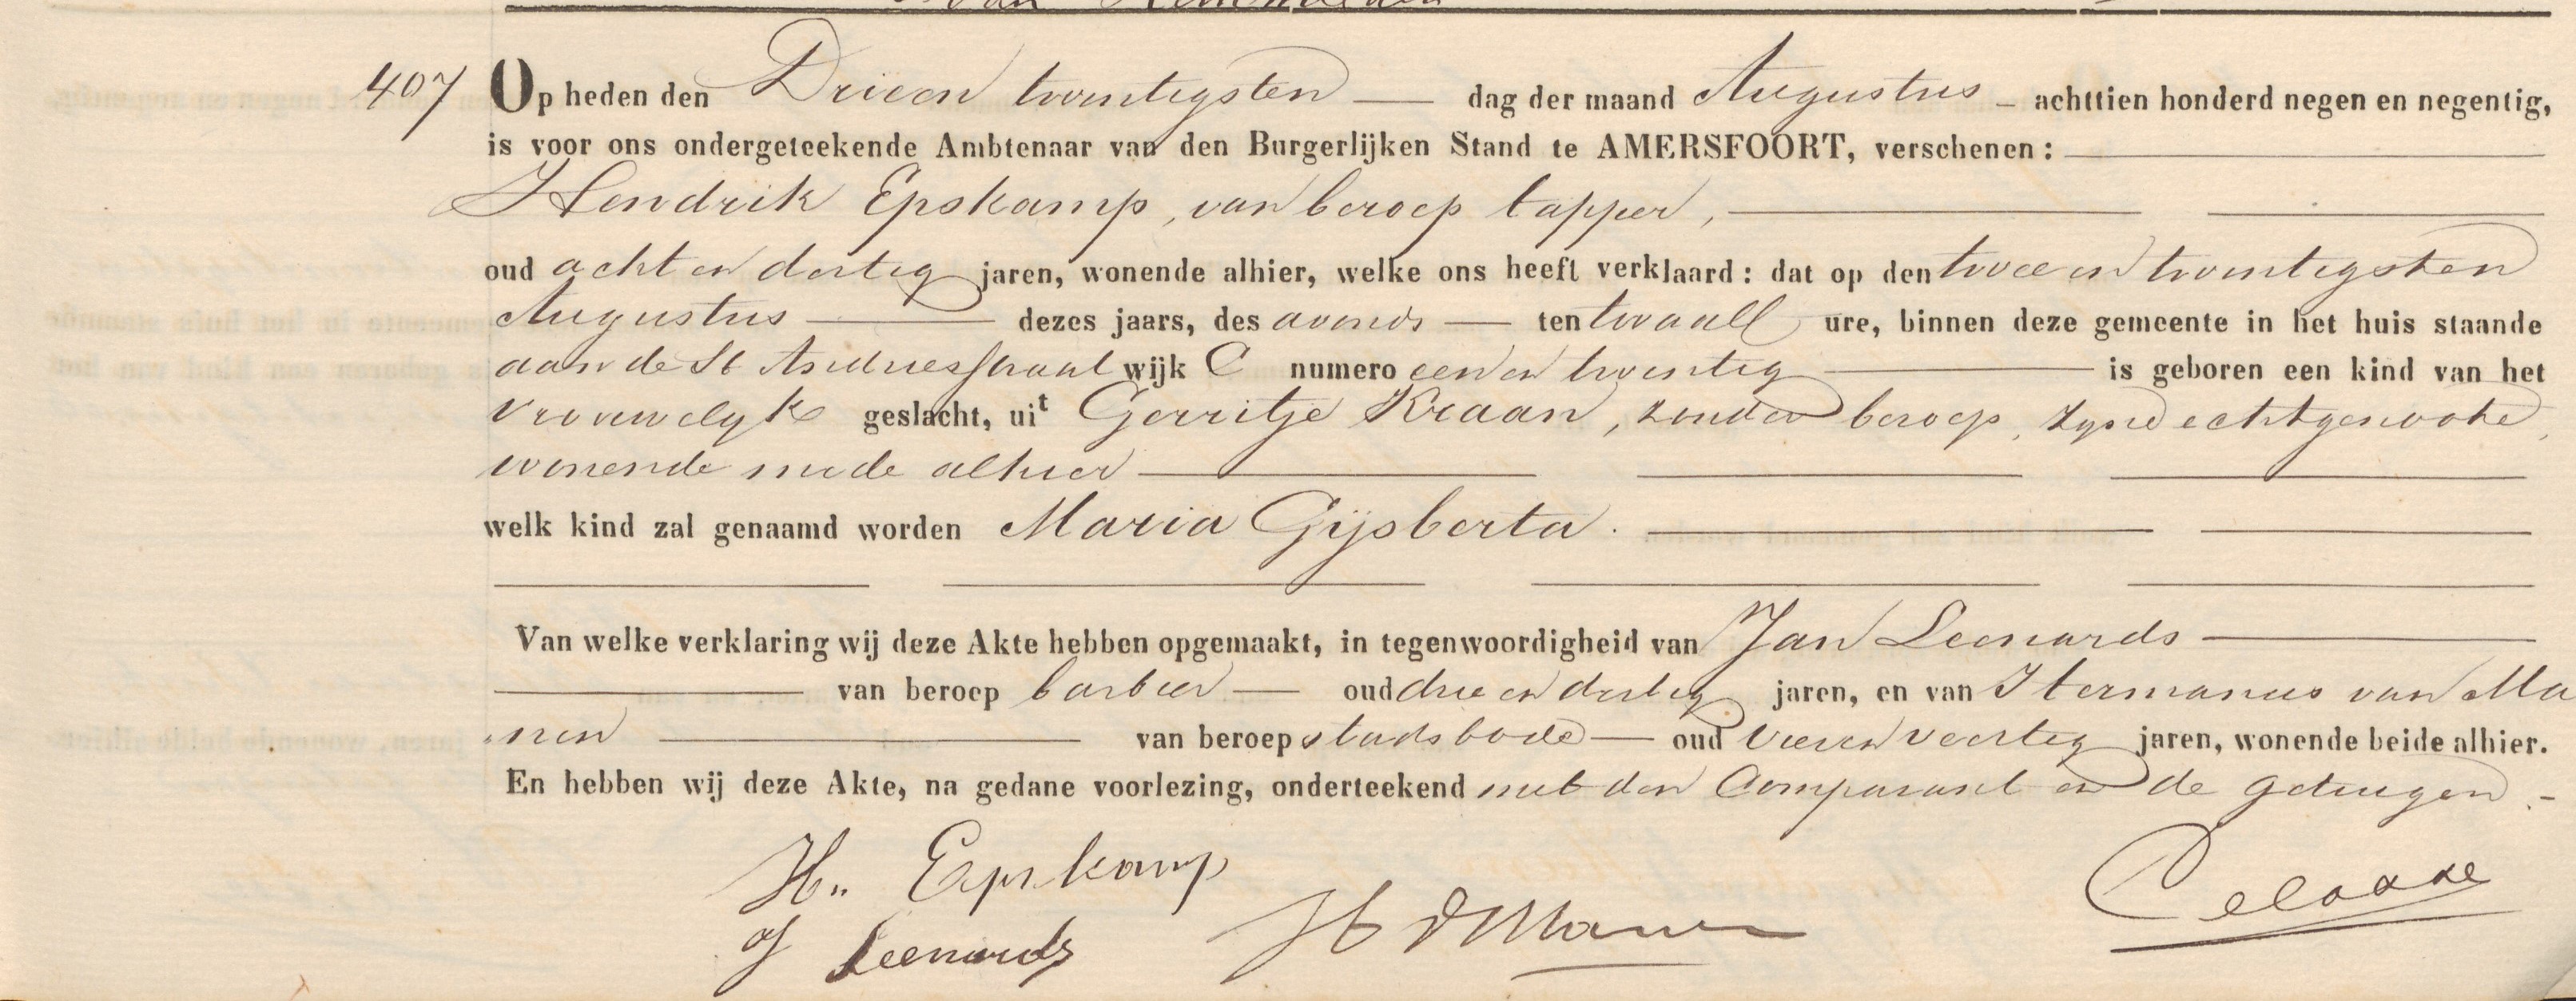 407 Op heden den Drieen twentigsten — dag der maand Augustus – achttien honderd negen en negentig,
is voor ons ondergeteekende Ambtenaar van den Burgerlijken Stand te AMERSFOORT, verschenen:
Hendrik Epskamp, van beroep tapper,
oud acht en dertig jaren, wonende alhier, welke ons heeft verklaard: dat op den twee en twentigsten
Augustus — dezes jaars, des avonds — ten twaalf ure, binnen deze gemeente in het huis staande
aan de St Andriesstraat wijk C numero een en twentig — is geboren een kind van het
vrouwelyk geslacht, uit Gerritje Kraan, zonder beroep, zynde echtgenoote,
wonende mede alhier
welk kind zal genaamd worden Maria Gijsberta.
Van welke verklaring wij deze Akte hebben opgemaakt, in tegenwoordigheid van Jan Leenards
van beroep barbier — oud drie en dertig jaren, en van Hermanus van Ma
nen van beroep stadsbode — oud vier en veertig jaren, wonende beide alhier.
En hebben wij deze Akte, na gedane voorlezing, onderteekend met den Comparant en de getuigen. -
Hn Epskamp
J Leenards H v Manen